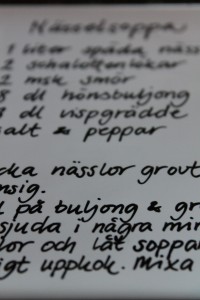 Nässelsoppa
1 liter späda näss
2 schalottenlökar
2 msk smör
8 dl hönsbuljong
dl vispgrädde
salt & peppar
cka nässlor grovt
nsig.
på buljong & gr
sjuda i några min
lor och låt soppan
igt uppkok. Mixa